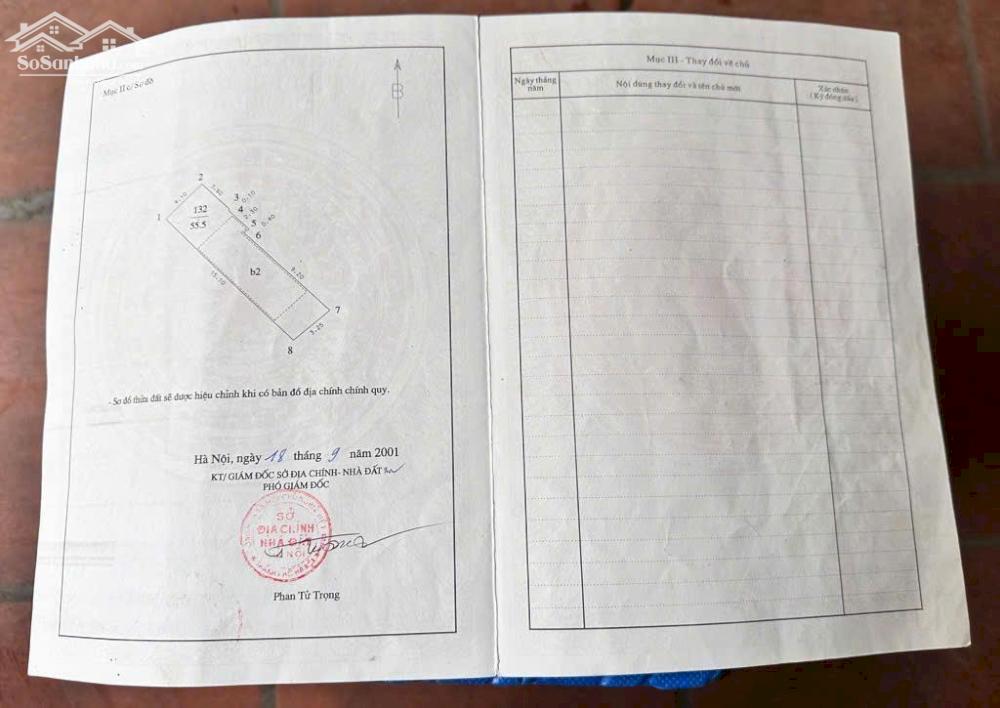 SoSanNha.com
Mục II c/ Sơ đồ
B
2
4.10
3.80
3
0.10
1
132
4
2.30
55.5
5
0.40
6
b2
9.20
15.10
7
3.25
8
- Sơ đồ thửa đất sẽ được hiệu chỉnh khi có bản đồ địa chính chính quy.
Hà Nội, ngày 18 tháng 9 năm 2001
KT/ GIÁM ĐỐC SỞ ĐỊA CHÍNH- NHÀ ĐẤT
PHÓ GIÁM ĐỐC
SỞ
ĐỊA CHÍNH
NHÀ ĐẤT
HÀ NỘI
Phan Tử Trọng
Mục III - Thay đổi về chủ
Ngày tháng năm
Nội dung thay đổi và tên chủ mới
Xác nhận
(Ký đóng dấu)